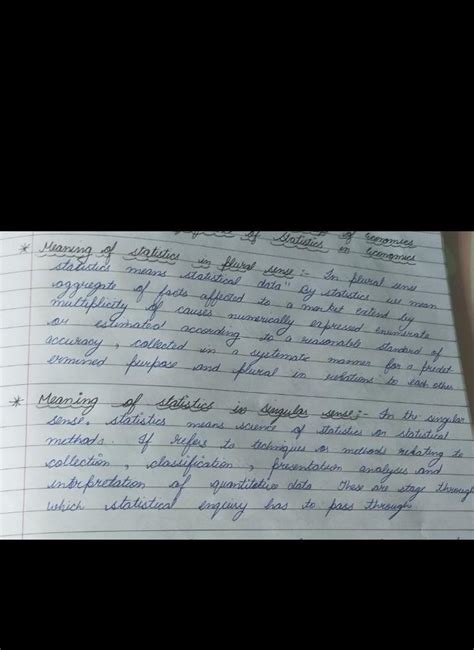 of Economics
of Statistics in Economics
* Meaning of statistics in plural sense :- In plural sense
statistics means statistical data" By statistics we mean
aggregate of facts affected to a market extend by
multiplicity of causes numerically expressed enumerate
or estimated according to a reasonable standard of
accuracy, collected in a systematic manner for a predet
ermined purpose and plural in relations to each other
* Meaning of statistics in singular sense :- In the singular
sense, statistics means science of statistics or statistical
methods. If refers to techniques or methods relating to
collection, classification, presentation analysis and
interpretation of quantitative data These are stage through
which statistical enquiry has to pass through.